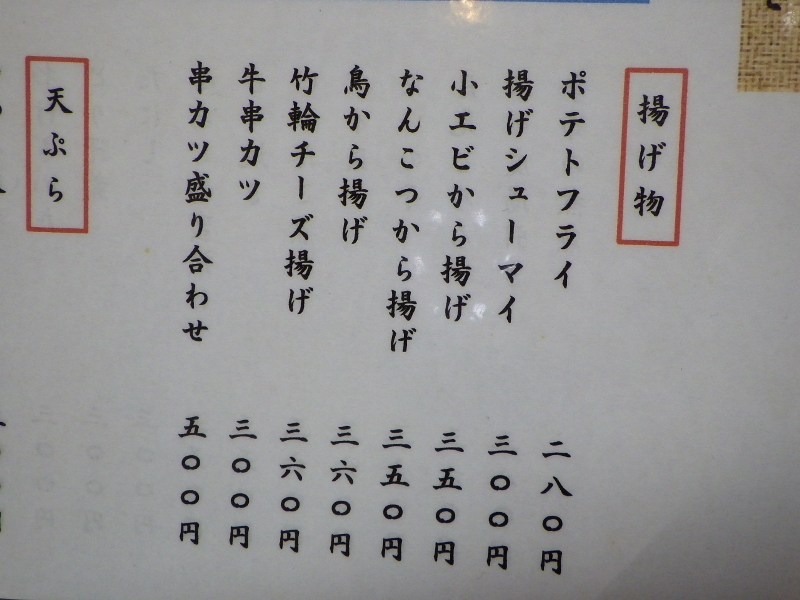 揚げ物
ポテトフライ 二八〇円
揚げシューマイ 三〇〇円
小エビから揚げ 三五〇円
なんこつから揚げ 三五〇円
鳥から揚げ 三六〇円
竹輪チーズ揚げ 三六〇円
牛串カツ 三〇〇円
串カツ盛り合わせ 五〇〇円
天ぷら